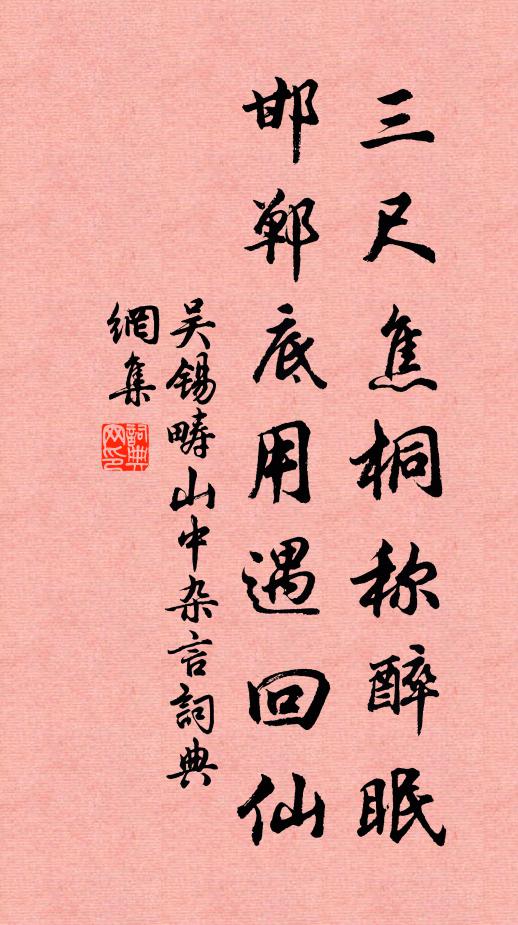 三尺焦桐称醉眠
邯郸底用遇回仙
吴锡畴山中杂言詞典
網集
詞典網印